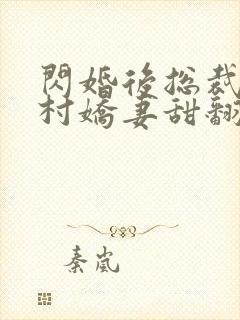 閃婚後總裁
村嬌妻甜翻
秦嵐